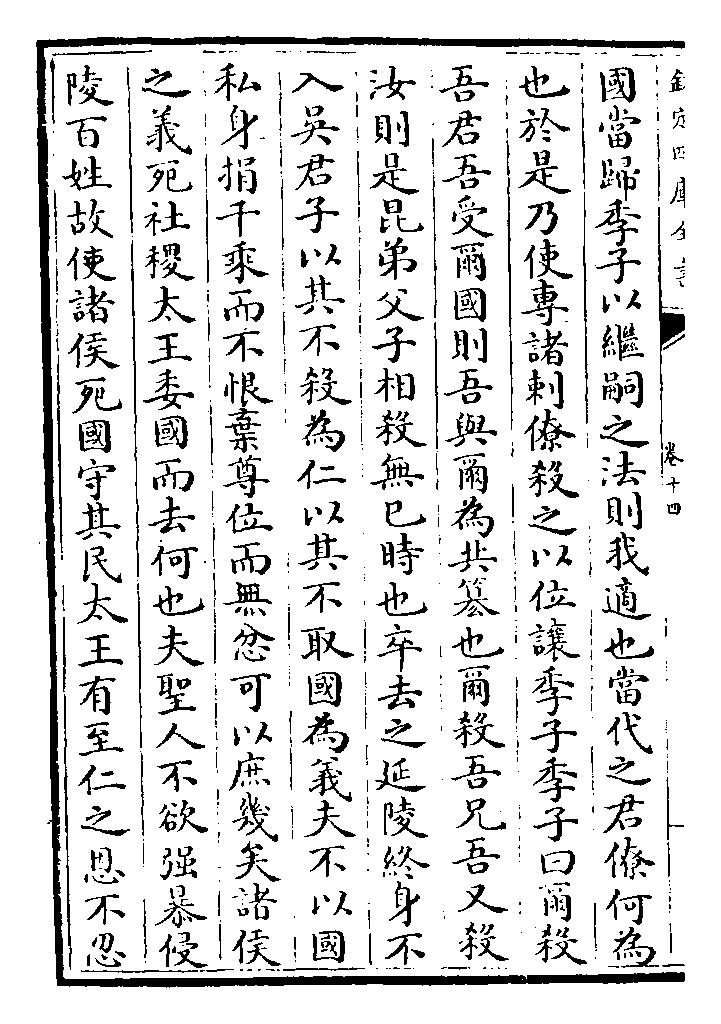 欽定四庫全書
卷十四
國當歸季子以繼嗣之法則我適也當代之君僚何為
也於是乃使專諸刺僚殺之以位讓季子季子曰爾殺
吾君吾受爾國則吾與爾為共簒也爾殺吾兄吾又殺
汝則是昆弟父子相殺無已時也卒去之延陵終身不
入吳君子以其不殺為仁以其不取國為義夫不以國
私身捐千乘而不恨棄尊位而無忿可以庶幾矣諸侯
之義死社稷太王委國而去何也夫聖人不欲强暴侵
陵百姓故使諸侯死國守其民太王有至仁之恩不忍